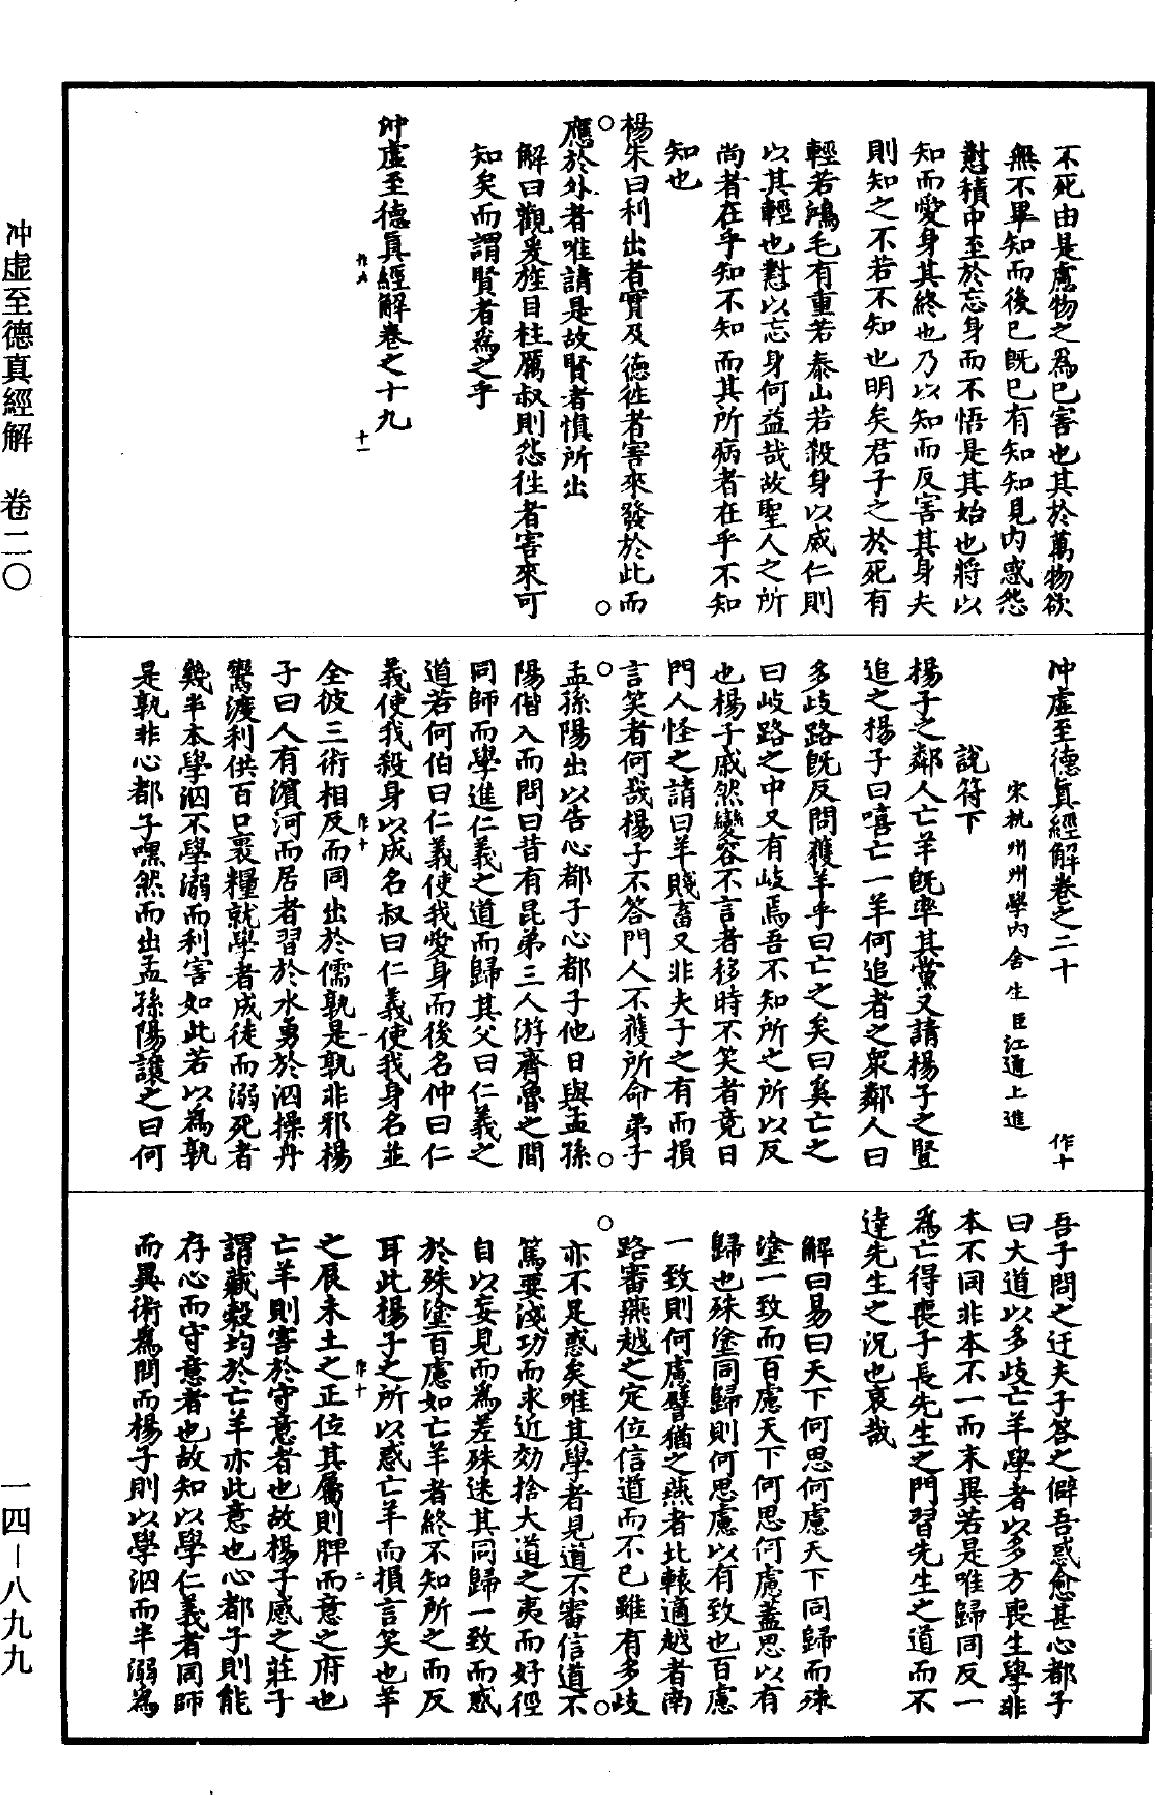 不死由是慮物之爲己害也其於萬物欲
無不畢知而後已旣已有知知見內惑怨
懟積中至於忘身而不悟是其始也將以
知而愛身其終也乃以知而反害其身夫
則知之不若不知也明矣君子之於死有
輕若鴻毛有重若泰山若殺身以成仁則
以其輕也懟以忘身何益哉故聖人之所
尚者在乎知不知而其所病者在乎不知
知也
楊朱曰利出者實及德徃者害來發於此而
應於外者唯請是故賢者慎所出
解曰觀爰旌目柱厲叔則怨徃者害來可
知矣而謂賢者爲之乎
冲虛至德眞經解卷之十九
作九 十一
冲虛至德眞經解卷之二十 作十
宋杭州州學內舍生臣江遹上進
說符下
楊子之鄰人亡羊旣率其黨又請楊子之豎
追之楊子曰嘻亡一羊何追者之衆鄰人曰
多歧路旣反問獲羊乎曰亡之矣曰奚亡之
曰歧路之中又有歧焉吾不知所之所以反
也楊子戚然變容不言者移時不笑者竟日
門人怪之請曰羊賤畜又非夫子之有而損
言笑者何哉楊子不答門人不獲所命弟子
孟孫陽出以告心都子心都子他日與孟孫
陽偕入而問曰昔有昆弟三人游齊魯之間
同師而學進仁義之道而歸其父曰仁義之
道若何伯曰仁義使我愛身而後名仲曰仁
義使我殺身以成名叔曰仁義使我身名並
作十 一
全彼三術相反而同出於儒孰是孰非邪楊
子曰人有濱河而居者習於水勇於泅操舟
鬻渡利供百口裹糧就學者成徒而溺死者
幾半本學泅不學溺而利害如此若以爲孰
是孰非心都子嘿然而出孟孫陽讓之曰何
吾子問之迂夫子答之僻吾惑愈甚心都子
曰大道以多歧亡羊學者以多方喪生學非
本不同非本不一而末異若是唯歸同反一
爲亡得喪子長先生之門習先生之道而不
達先生之況也哀哉
解曰易曰天下何思何慮天下同歸而殊
塗一致而百慮天下何思何慮蓋思以有
歸也殊塗同歸則何思慮以有致也百慮
一致則何慮譬猶之燕者北轅適越者南
路審燕越之定位信道而不已雖有多歧
亦不足惑矣唯其學者見道不審信道不
篤要淺功而求近効捨大道之夷而好徑
自以妄見而爲差殊迷其同歸一致而惑
於殊塗百慮如亡羊者終不知所之而反
耳此楊子之所以惑亡羊而損言笑也羊
作十 二
之辰未土之正位其屬則脾而意之府也
亡羊則害於守意者也故楊子感之莊子
謂臧穀均於亡羊亦此意也心都子則能
存心而守意者也故知以學仁義者同師
而異術爲問而楊子則以學泅而半溺爲
冲虛至德真經解 卷二〇
一四—八九九